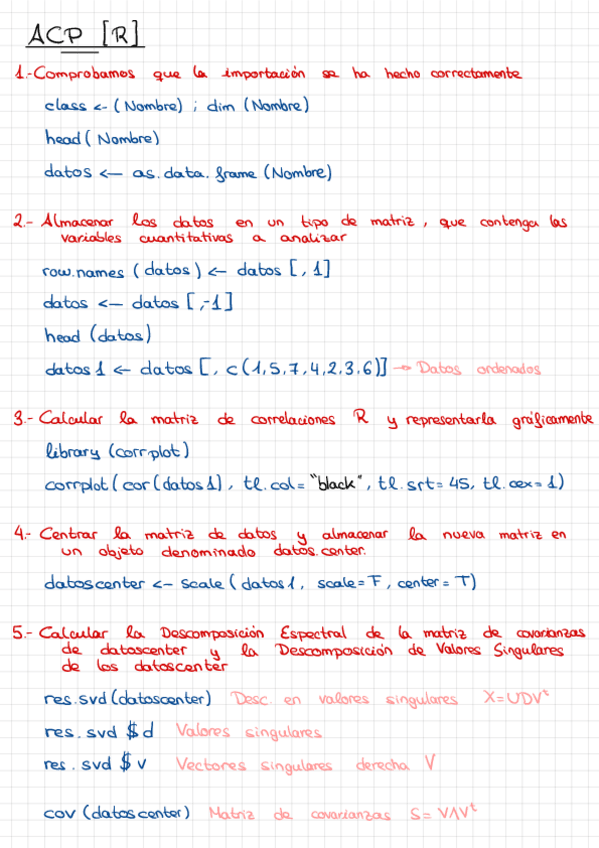 ACP [R]
1.- Comprobamos que la importación se ha hecho correctamente
class <- (Nombre) ; dim (Nombre)
head (Nombre)
datos <- as.data.frame (Nombre)
2.- Almacenar los datos en un tipo de matriz, que contenga las
variables cuantitativas a analizar
row.names (datos) <- datos [, 1]
datos <- datos [,-1]
head (datos)
datos1 <- datos [, c(1,5,7,4,2,3,6)] → Datos ordenados
3.- Calcular la matriz de correlaciones R y representarla gráficamente
library (corrplot)
corrplot (cor (datos1), tl.col = "black", tl.srt = 45, tl.cex = 1)
4.- Centrar la matriz de datos y almacenar la nueva matriz en
un objeto denominado datos.center.
datoscenter <- scale (datos1, scale = F, center = T)
5.- Calcular la Descomposición Espectral de la matriz de covarianzas
de datoscenter y la Descomposición de Valores Singulares
de los datoscenter
res.svd (datoscenter) Desc. en valores singulares X=UDVᵗ
res.svd $d Valores singulares
res.svd $v Vectores singulares derecha V
cov (datoscenter) Matriz de covarianzas S= VΛVᵗ